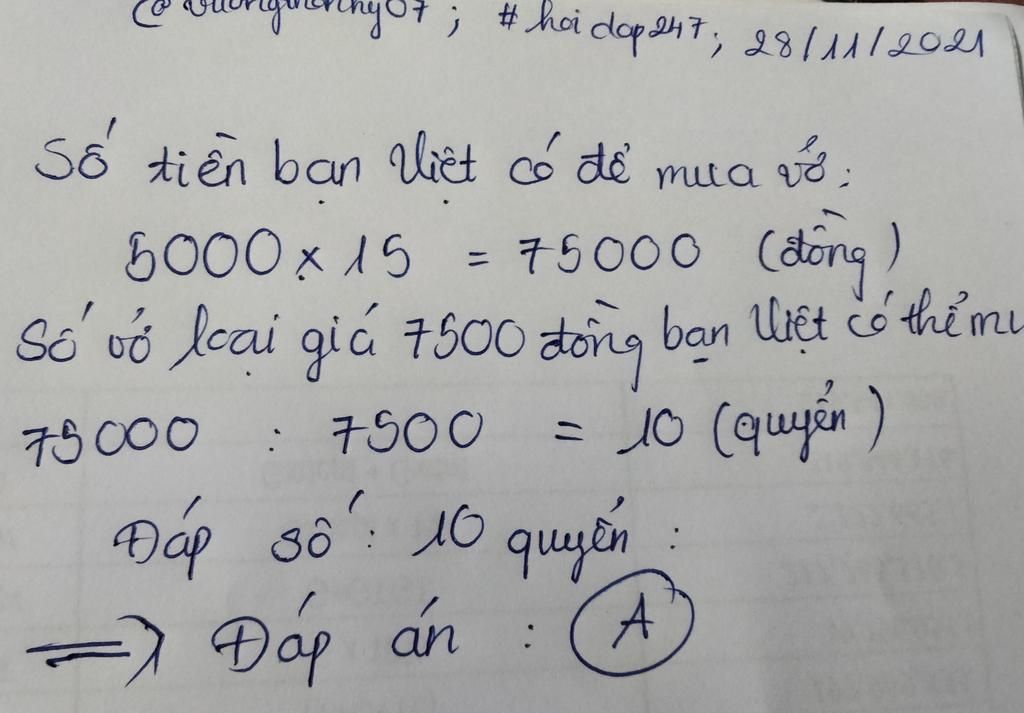 ; #hoidap247; 28/11/2021
Số tiền bạn Việt có để mua vở:
5000 x 15 = 75000 (đồng)
Số vở loại giá 7500 đồng bạn Việt có thể mu
75000 : 7500 = 10 (quyển)
Đáp số: 10 quyển:
=> Đáp án : A